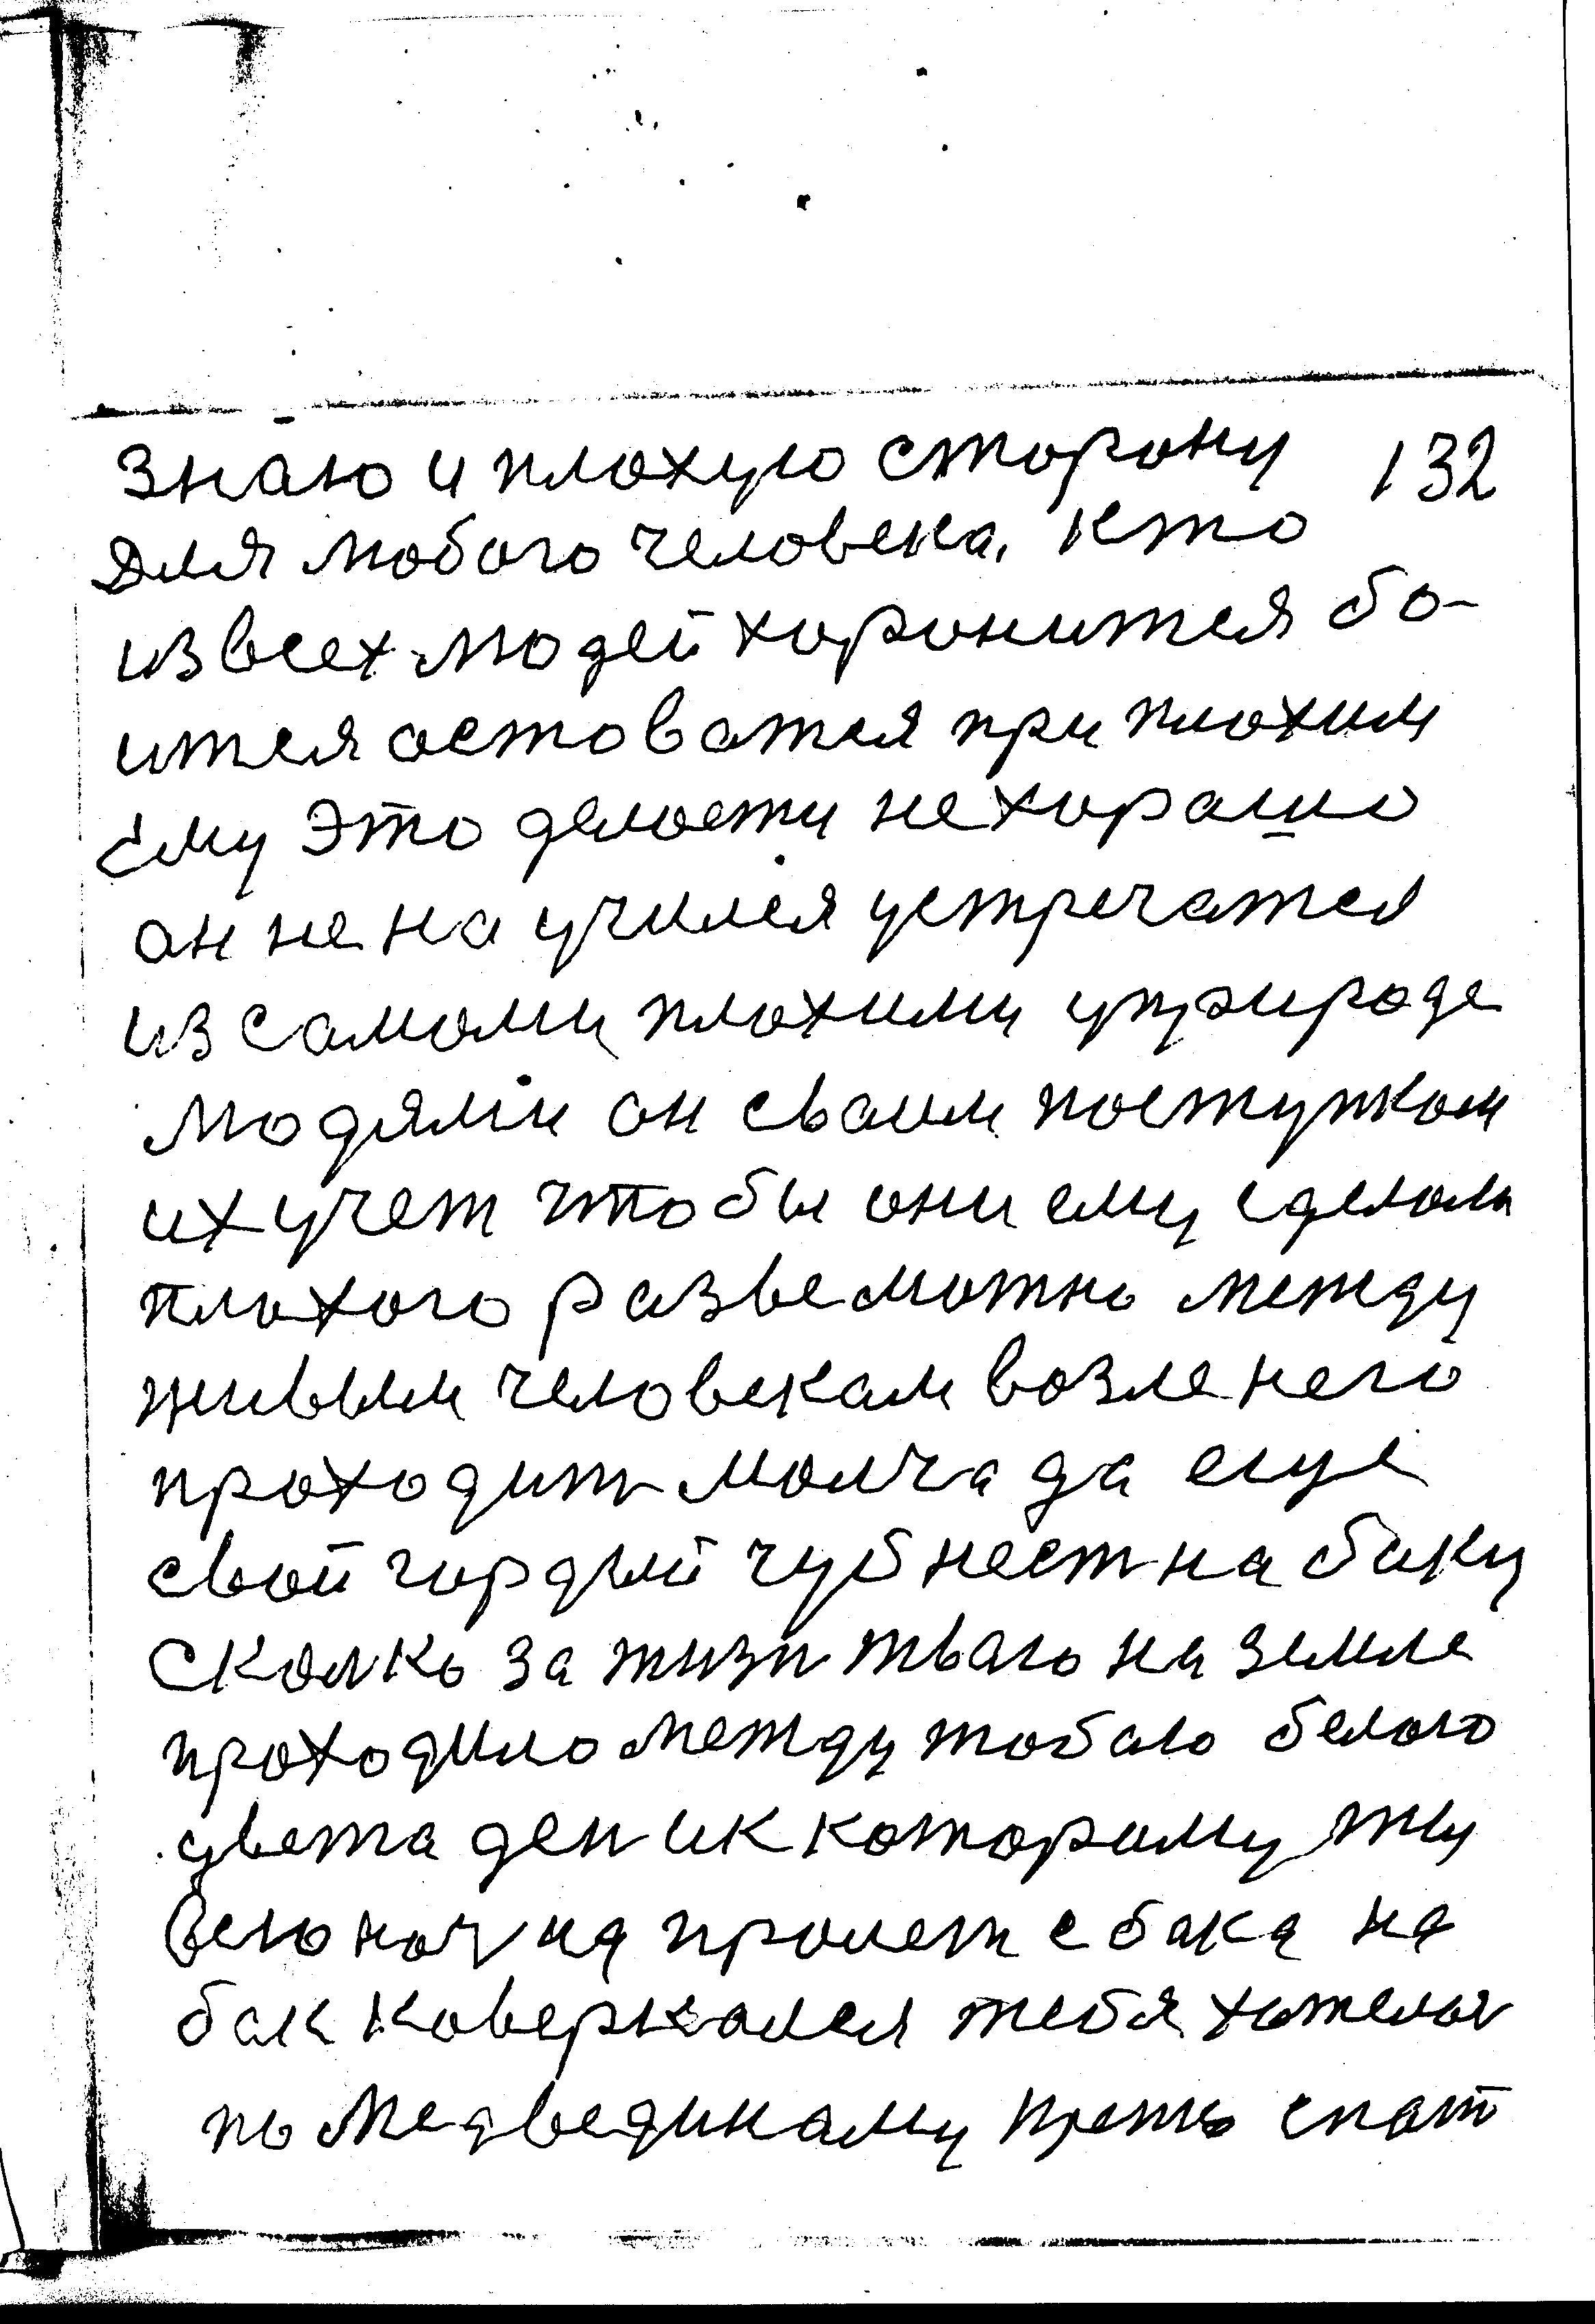 знаю и плохую сторону 132
для любого человека. кто
из всех людей хоронится бо-
ится остоватся при плохим
ему это делоети не хорашо
он не научился устречатся
из самоми плохими уприроде
людями он сваим поступком
их учет чтобы они ему сделоли
плохого разве можно между
живым человекам возле него
проходить молча да еще
свой гордый чуб нест на баку
сколко за жизн тваю на земле
проходило между тобаю белого
цвета ден ик которому ты
всю ноч на пролет с бака на
бак коверкался тебя тожелая
по медведикаму спат